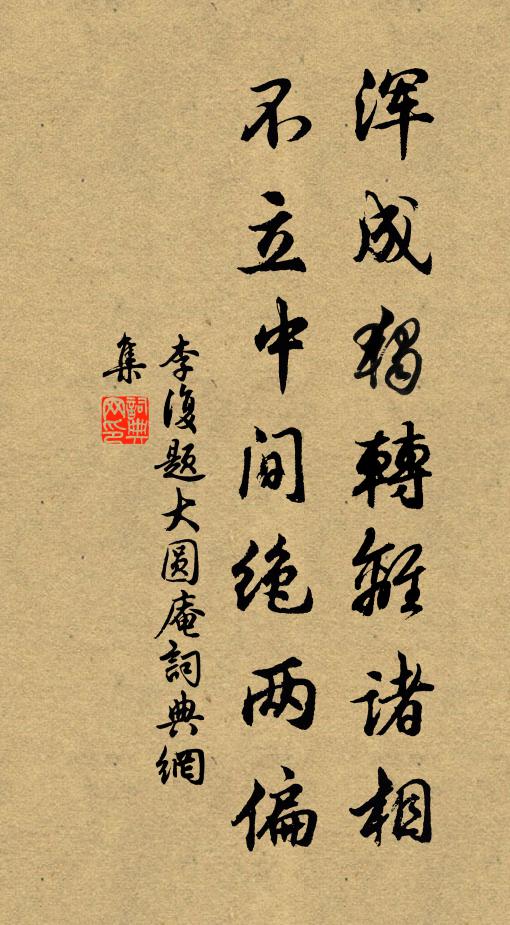 浑成独轉離诸相
不立中间绝两偏
李復题大圆庵詞典網
集
詞典网印